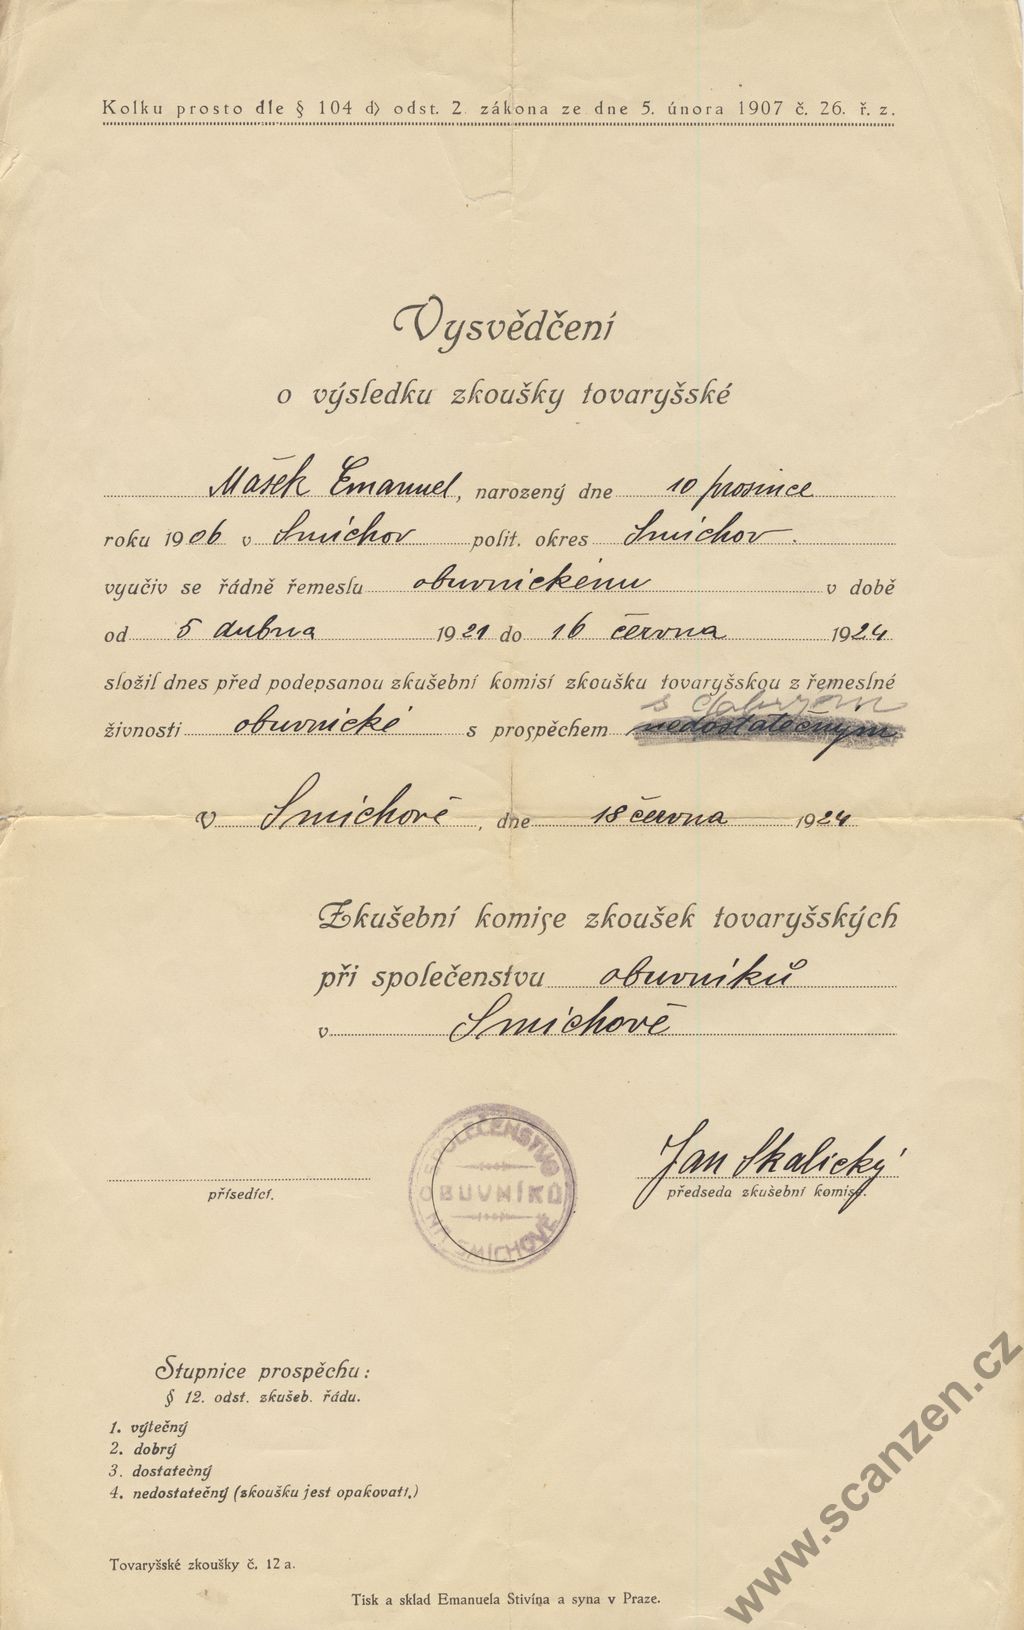 Kolku prosto dle § 104 d) odst. 2. zákona ze dne 5. února 1907 č. 26. ř. z.
Vysvědčení
o výsledku zkoušky tovaryšské
Mašek Emanuel, narozený dne 10 prosince
roku 1906 v Smíchov polit. okres Smíchov.
vyučiv se řádně řemeslu obuvnickému v době
od 5 dubna 1921 do 16 června 1924
složil dnes před podepsanou zkušební komisí zkoušku tovaryšskou z řemeslné
s dobrým
živnosti obuvnické s prospěchem nedostatečným
v Smíchově, dne 18 června 1924
Zkušební komise zkoušek tovaryšských
při společenstvu obuvníků
v Smíchově
SPOLEČENSTVO
OBUVNÍKŮ
NA SMÍCHOVĚ
Jan Skalický
přísedící.
předseda zkušební komise.
Stupnice prospěchu:
§ 12. odst. zkušeb. řádu.
1. výtečný
2. dobrý
3. dostatečný
4. nedostatečný (zkoušku jest opakovati.)
Tovaryšské zkoušky č. 12 a.
Tisk a sklad Emanuela Stivína a syna v Praze.
www.scanzen.cz